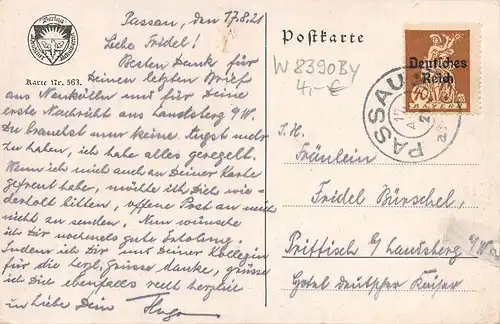 Passau, den 17.8.21
Liebe Fridel!
Besten Dank für
Deinen letzten Brief
aus Neukölln und für Deine
erste Nachricht aus Landsberg a/W.
Du brauchst nur keine Angst mehr
zu haben, ich habe alles geregelt.
Wenn ich mich auch an Deiner Karte
gefreut habe, möchte ich Dich wie-
derholt bitten, offene Post an mich
nicht zu senden. Nun wünsche
ich Dir nochmals gute Erholung.
Indem ich Dir und Deiner Kollegin
für die herzl. Grüsse danke, grüsse
ich Dich ebenfalls recht herzlich
in Liebe Dein Hugo
Karte Nr. 563.
Postkarte
W8390BY
4.-€
Deutsches
Reich
BAYERN
PASSAU
S. H.
Fräulein
Fridel Bürschel,
Prittisch b/ Landsberg a/W.
Hotel deutscher Kaiser